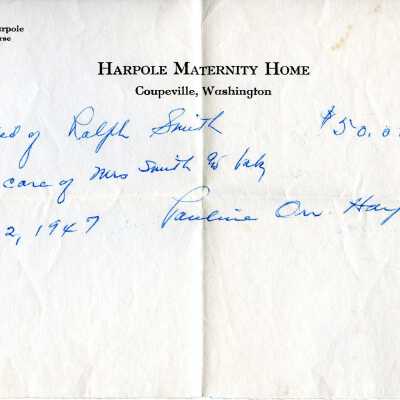 arpole
rse
HARPOLE MATERNITY HOME
Coupeville, Washington
ed of Ralph Smith $50.0
care of Mrs Smith & baby
2, 1947 Pauline Orr Har